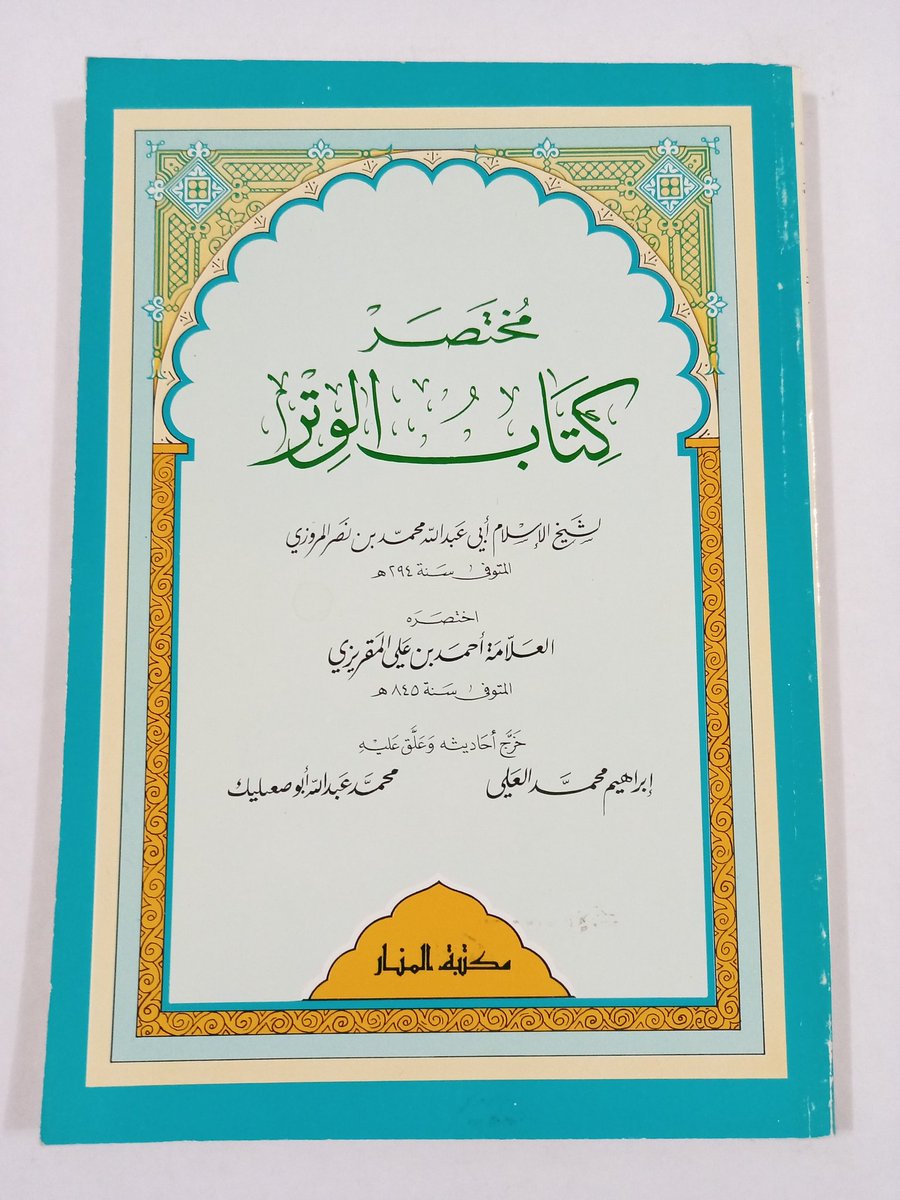 مُختَصَرْ
كِتَابُ الوِترْ
لشَيخ الإسْلام أبي عَبدالله محمّد بن نصَر المروزي
المتوفى سَنة ٢٩٤ هـ
اختصَره
العَلاّمَة أحمَد بن عَلي المقريزي
المتوفى سَنة ٨٤٥ هـ
خَرَّج أحَاديثه وَعَلَّق عَليْهِ
إبراهيم محمَّد العَلي
محمَّد عَبدالله أبو صعيليك
مكتبة المنار